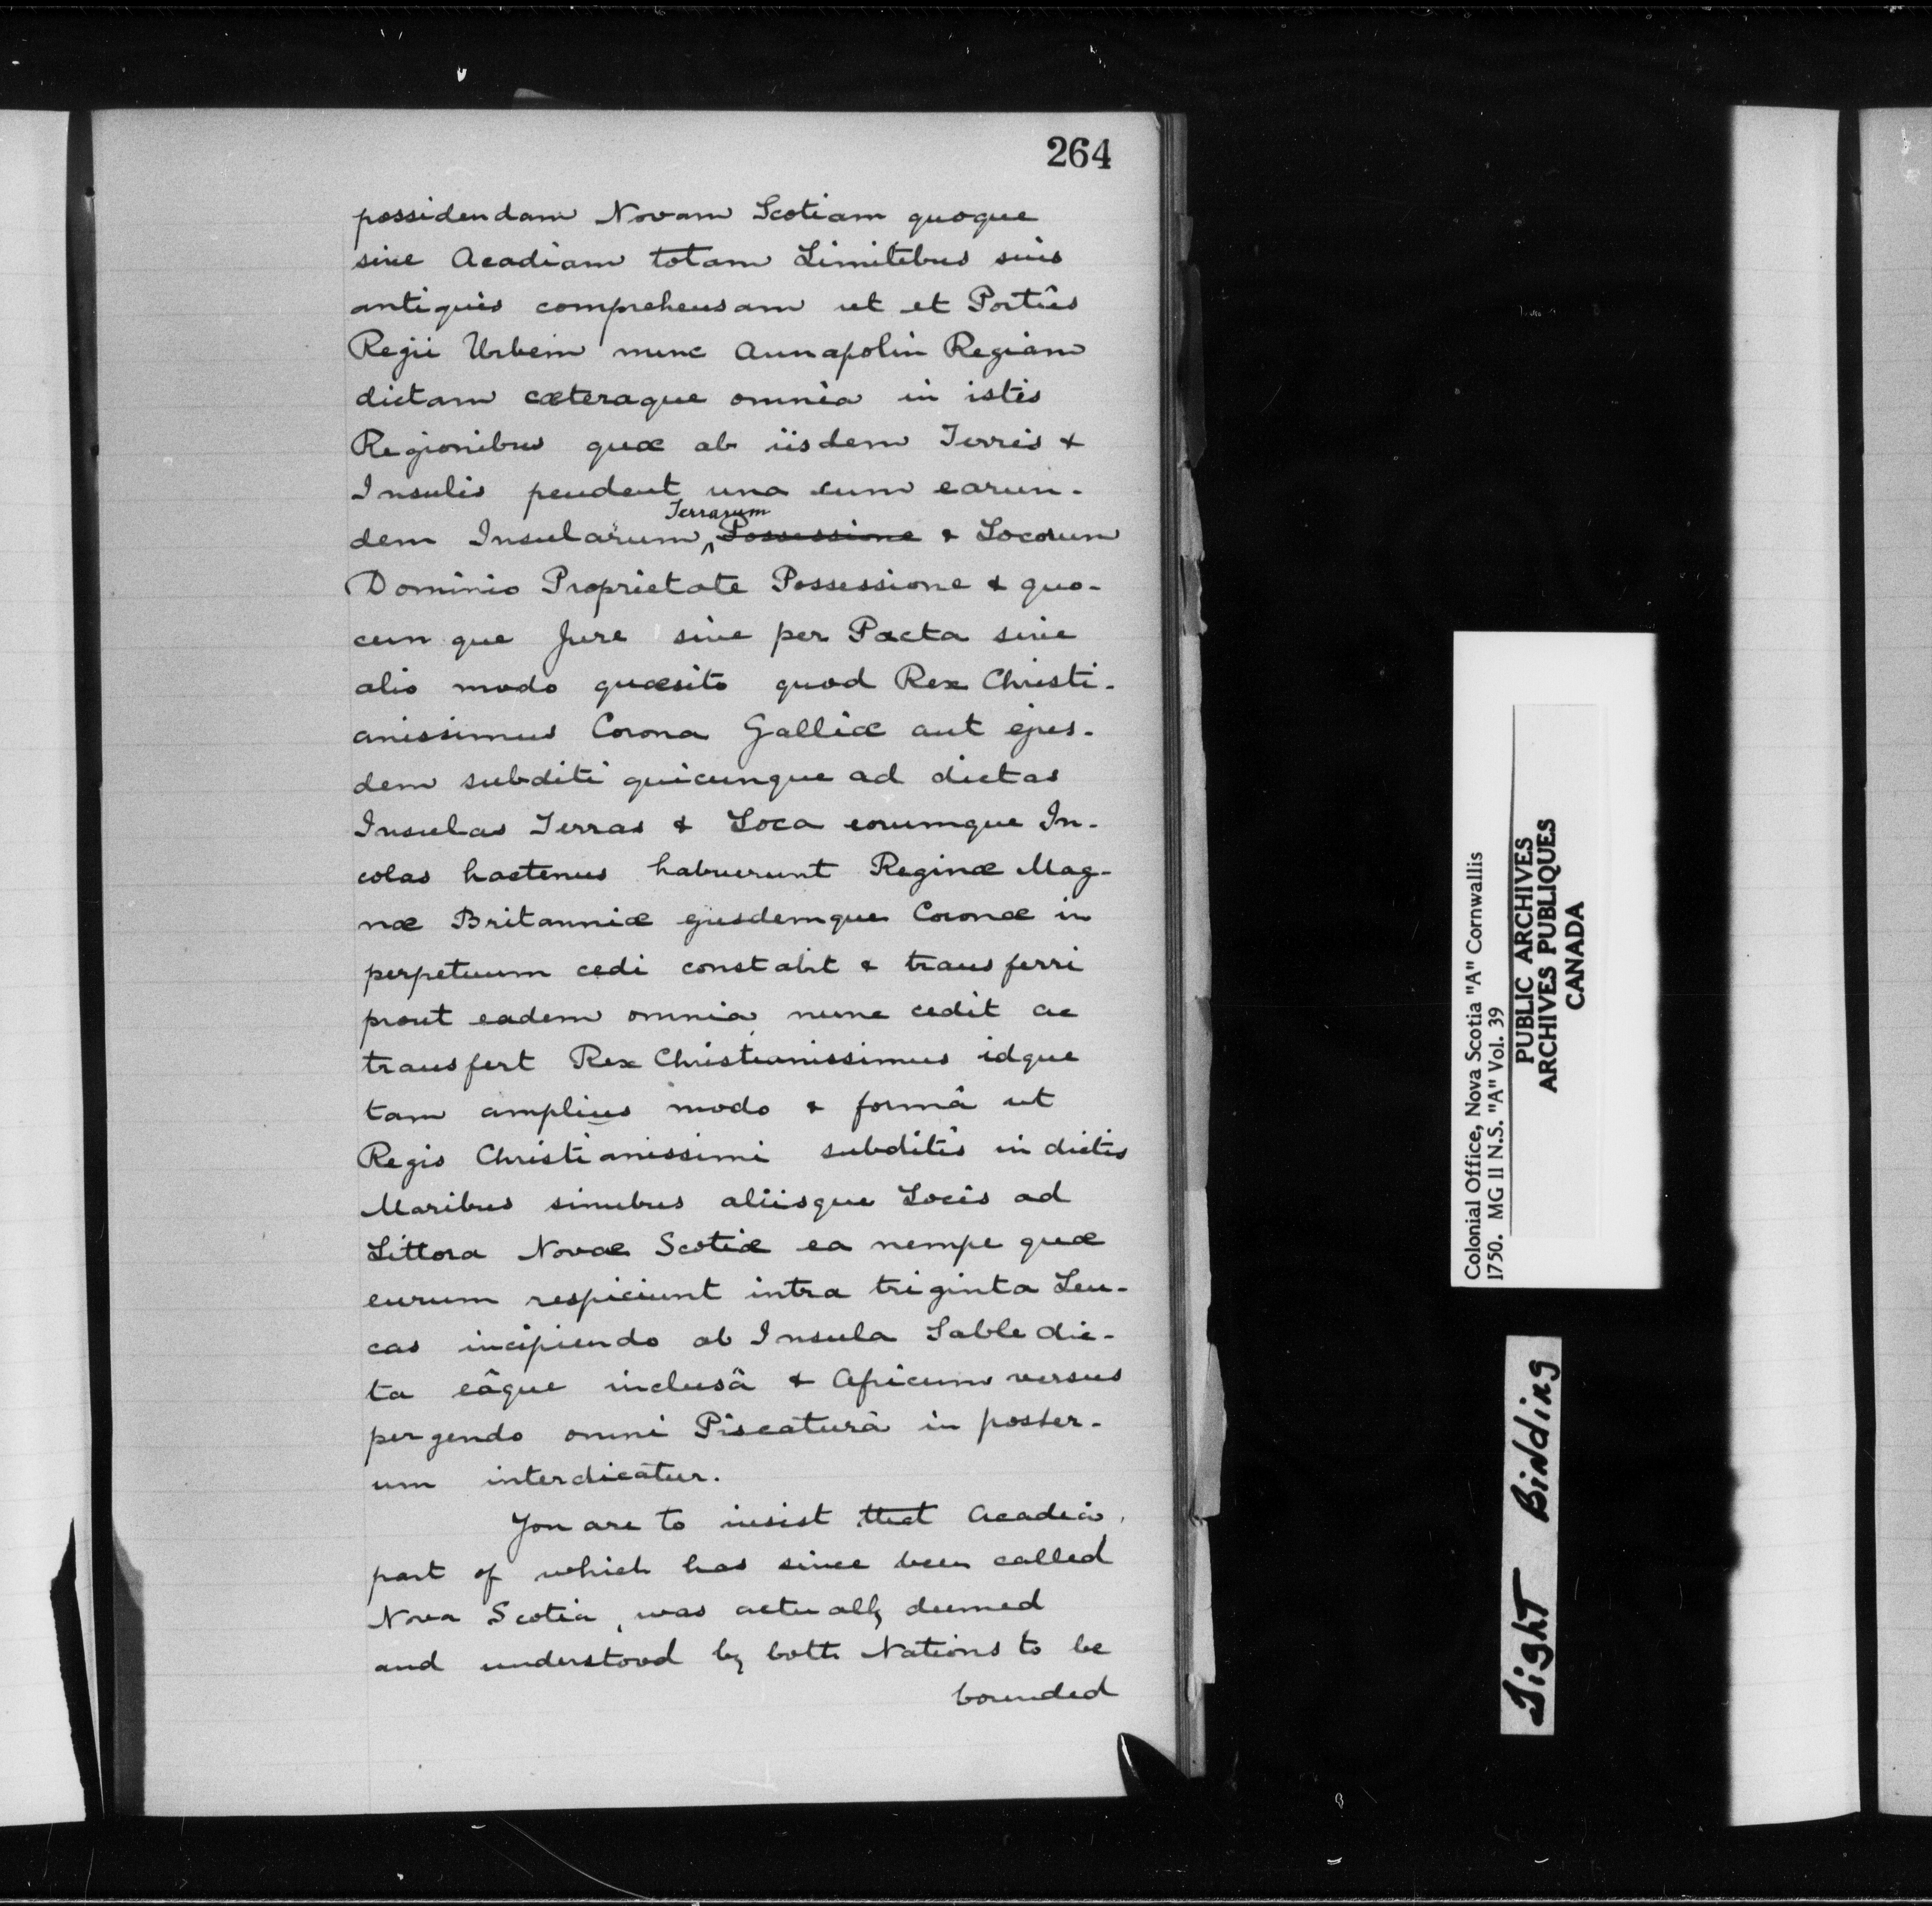 264
possidendam Novam Scotiam quoque
sive Acadiam totam Limitibus suis
antiquis comprehensam ut et Portûs
Regii Urbem nunc Annapolin Regiam
dictam cæteraque omnia in istis
Regionibus quæ ab iisdem Terris &
Insulis pendent una cum earun-
Terrarum
dem Insularum ^ Possessione & Locorum
Dominio Proprietate Possessione & quo-
cun que Jure sive per Pacta sive
alio modo quæsito quod Rex Christi-
anissimus Corona Galliæ aut ejus-
dem subditi quicunque ad dictas
Insulas Terras & Loca eorumque In-
colas hactenus habuerunt Reginæ Mag-
næ Britanniæ ejusdemque Coronæ in
perpetuum cedi constabit & transferri
prout eadem omnia nunc cedit ac
transfert Rex Christianissimus idque
tam amplius modo & formâ ut
Regis Christianissimi subditis in dictis
Maribus sinubus aliisque Locis ad
Littora Novæ Scotiæ ea nempe quæ
eurum respiciunt intra triginta Leu-
cas incipiendo ab Insula Sable dic-
ta eâque inclusâ & Apicum versus
pergendo omni Piscaturâ in poster-
um interdicatur.
You are to insist that Acadia,
part of which has since been called
Nova Scotia, was actually deemed
and understood by both Nations to be
bounded
Colonial Office, Nova Scotia "A" Cornwallis
1750. MG 11 N.S. "A" Vol. 39
PUBLIC ARCHIVES
ARCHIVES PUBLIQUES
CANADA
Tight Binding